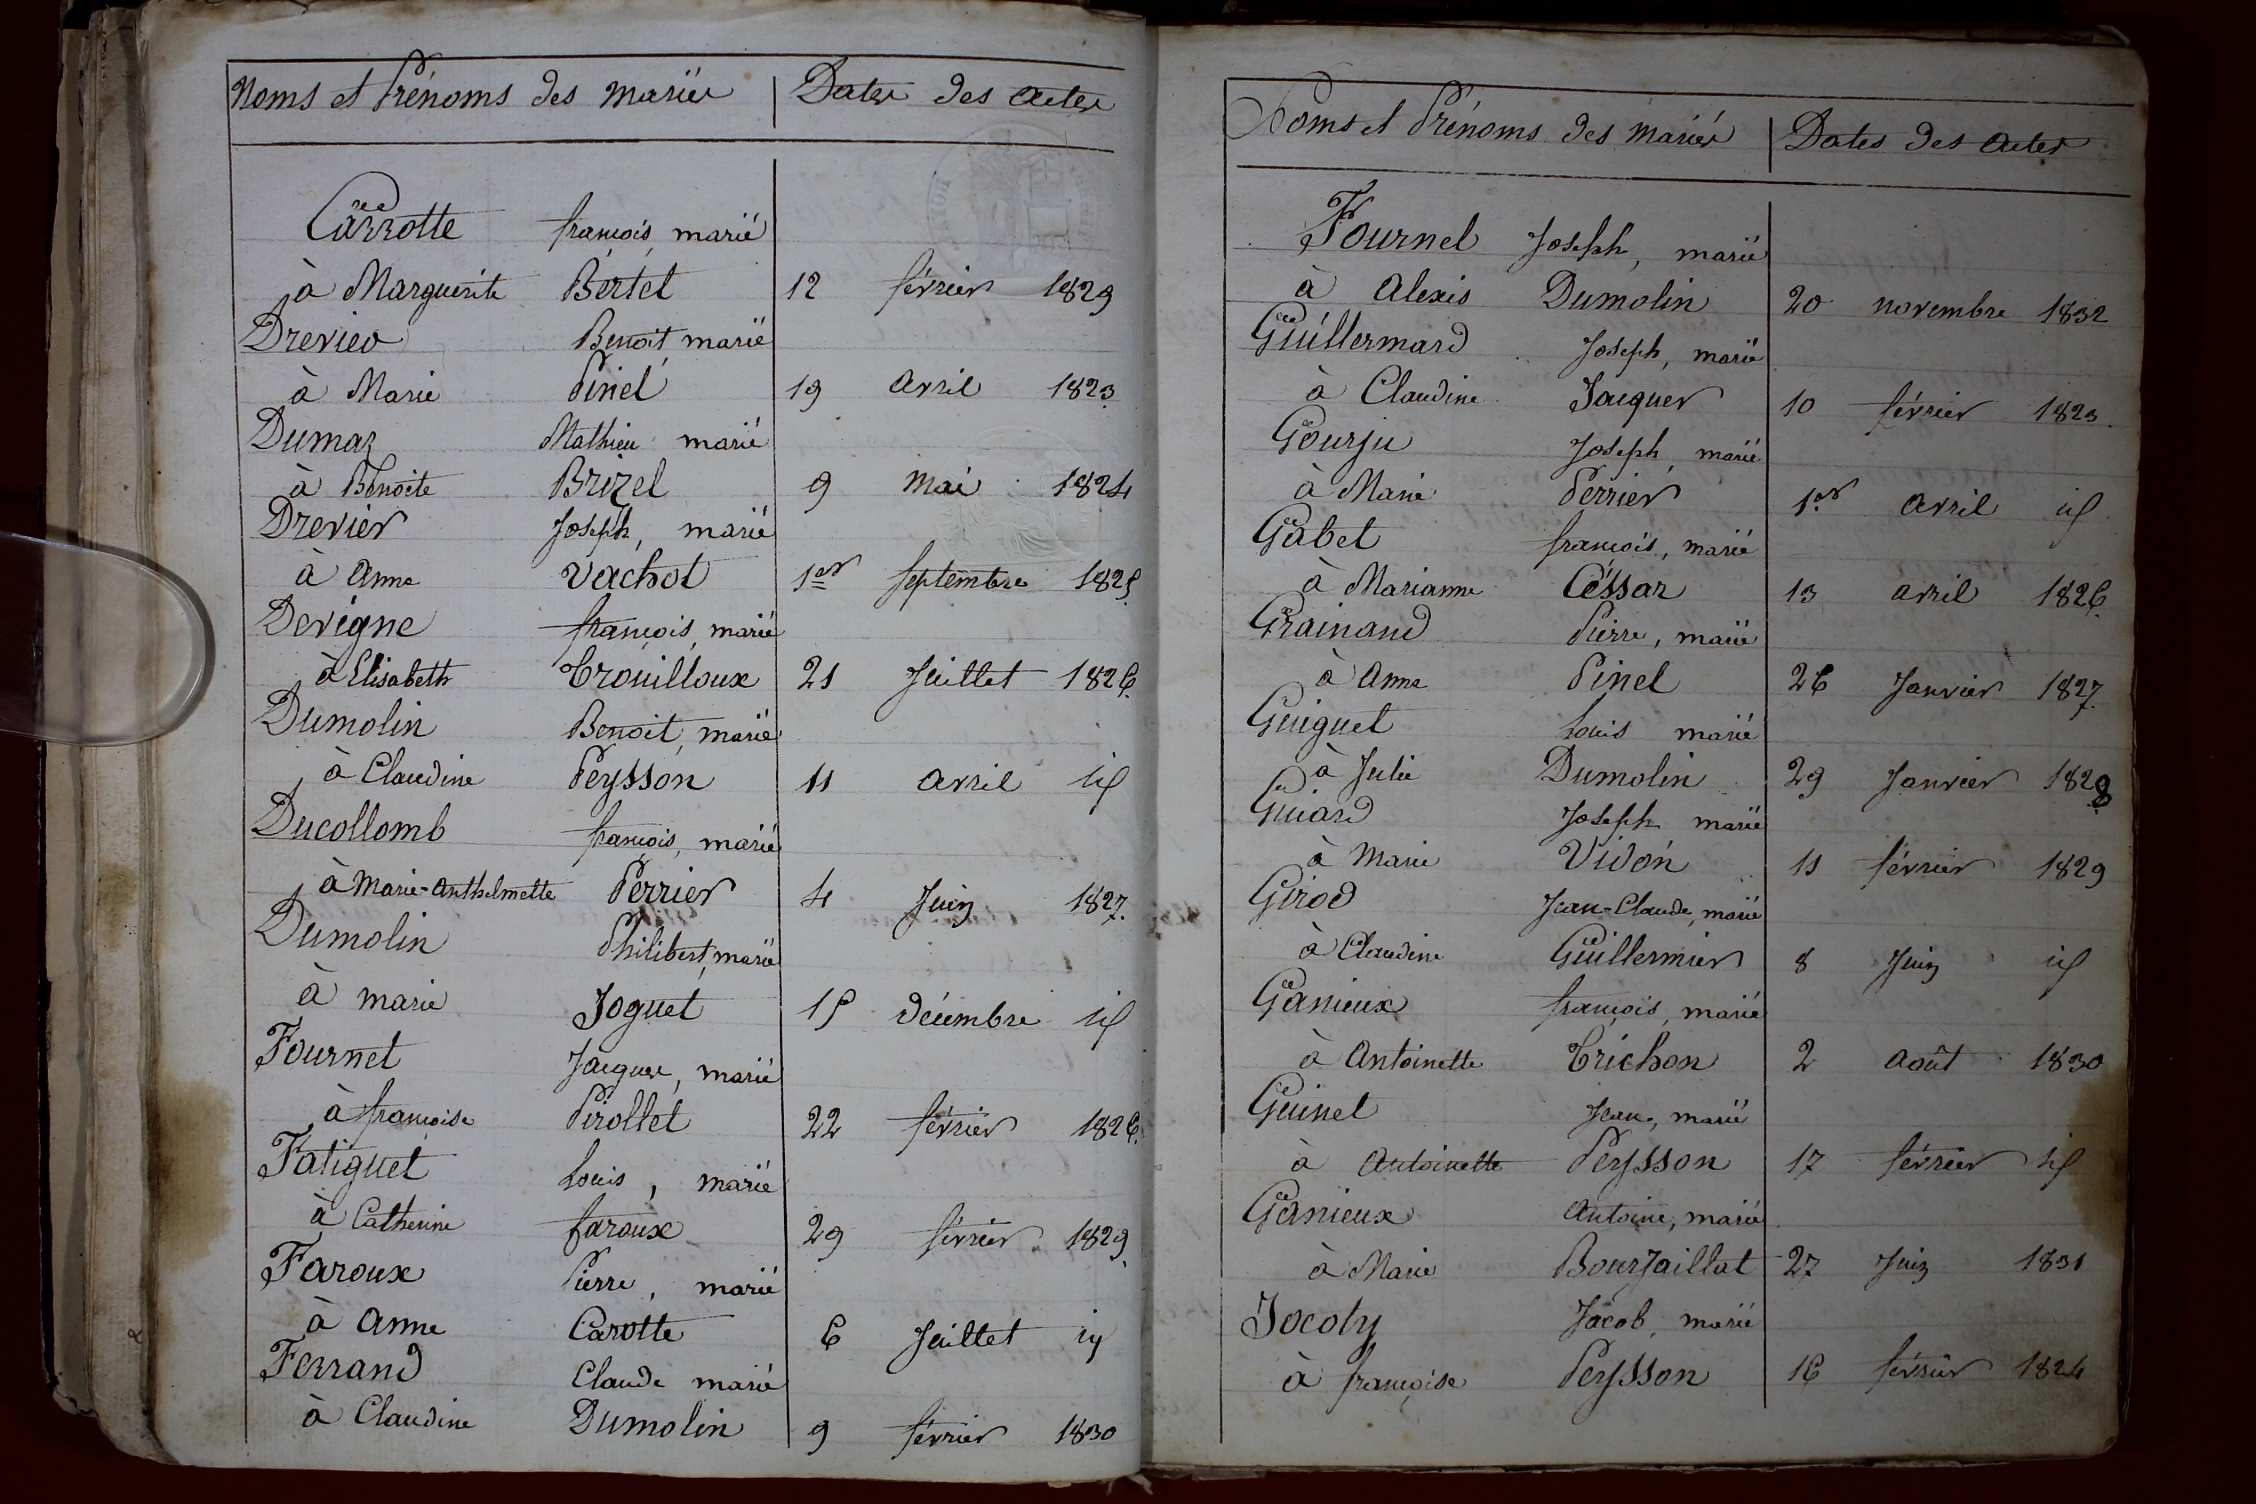 Noms et Prénoms des mariés Dates des actes
Carrotte françois, marié
à Marguerite Bertet 12 février 1829
Drevieo Benoit, marié
à Marie Pinel 19 avril 1823
Dumaz Mathieu marié
à Benoite Brizel 9 mai 1824
Drevier Joseph, marié
à anne Vachot 1er septembre 1825
Devigne françois, marié
à Elisabeth Trouilloux 21 Juillet 1826
Dumolin Benoit, marié
à Claudine Peysson 11 avril id
Ducollomb françois, marié
à Marie-anthelmette Perrier 4 Juin 1827
Dumolin Philibert, marié
à marie Joguet 15 décembre id
Fournet Jacques, marié
à françoise Pirollet 22 février 1826
Fatiguet Louis, marié
à Catherine faroux 29 février 1829
Faroux Pierre, marié
à anne Carotte 6 Juillet id
Ferrand Claude marié
à Claudine Dumolin 9 février 1830
Noms et Prénoms des mariés Dates des actes
Fournel Joseph, marié
à alexis Dumolin 20 novembre 1832
Guillermard Joseph, marié
à Claudine Jacquer 10 février 1823
Gourju Joseph, marié
à Marie Perrier 1er avril id
Gabet françois, marié
à Marianne Céssar 13 avril 1826
Grainand Pierre, marié
à anne Pinel 26 Janvier 1827
Guiguet Louis marié
à Julie Dumolin 29 Janvier 1828
Guiard Joseph marié
à marie Vidon 11 février 1829
Girod Jean-Claude, marié
à Claudine Guillermier 8 Juin id
Ganieux françois, marié
à antoinette Trichon 2 août 1830
Guinet Jean, marié
à antoinette Peysson 17 février id
Ganieux antoine, marié
à Marie Bourjaillat 27 Juin 1831
Jocoty Jacob, marié
à françoise Peysson 16 février 1824